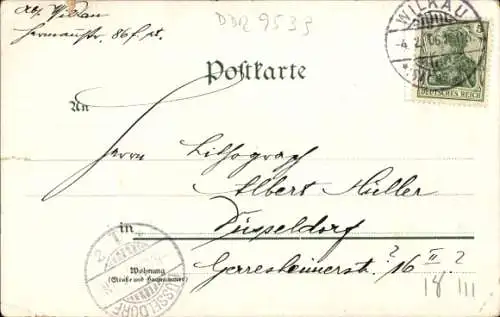 Wilkau
Hermannstr. 86 f. pt.
DDR 9533
WILKAU
-4. 2. 06
DEUTSCHES REICH
Postkarte
An
Herrn Lithograph
Albert Müller
in Düsseldorf
Wohnung
(Straße und Hausnummer)
Gerresheimerstr. ? 16 II ?
18 III
DÜSSELDORF